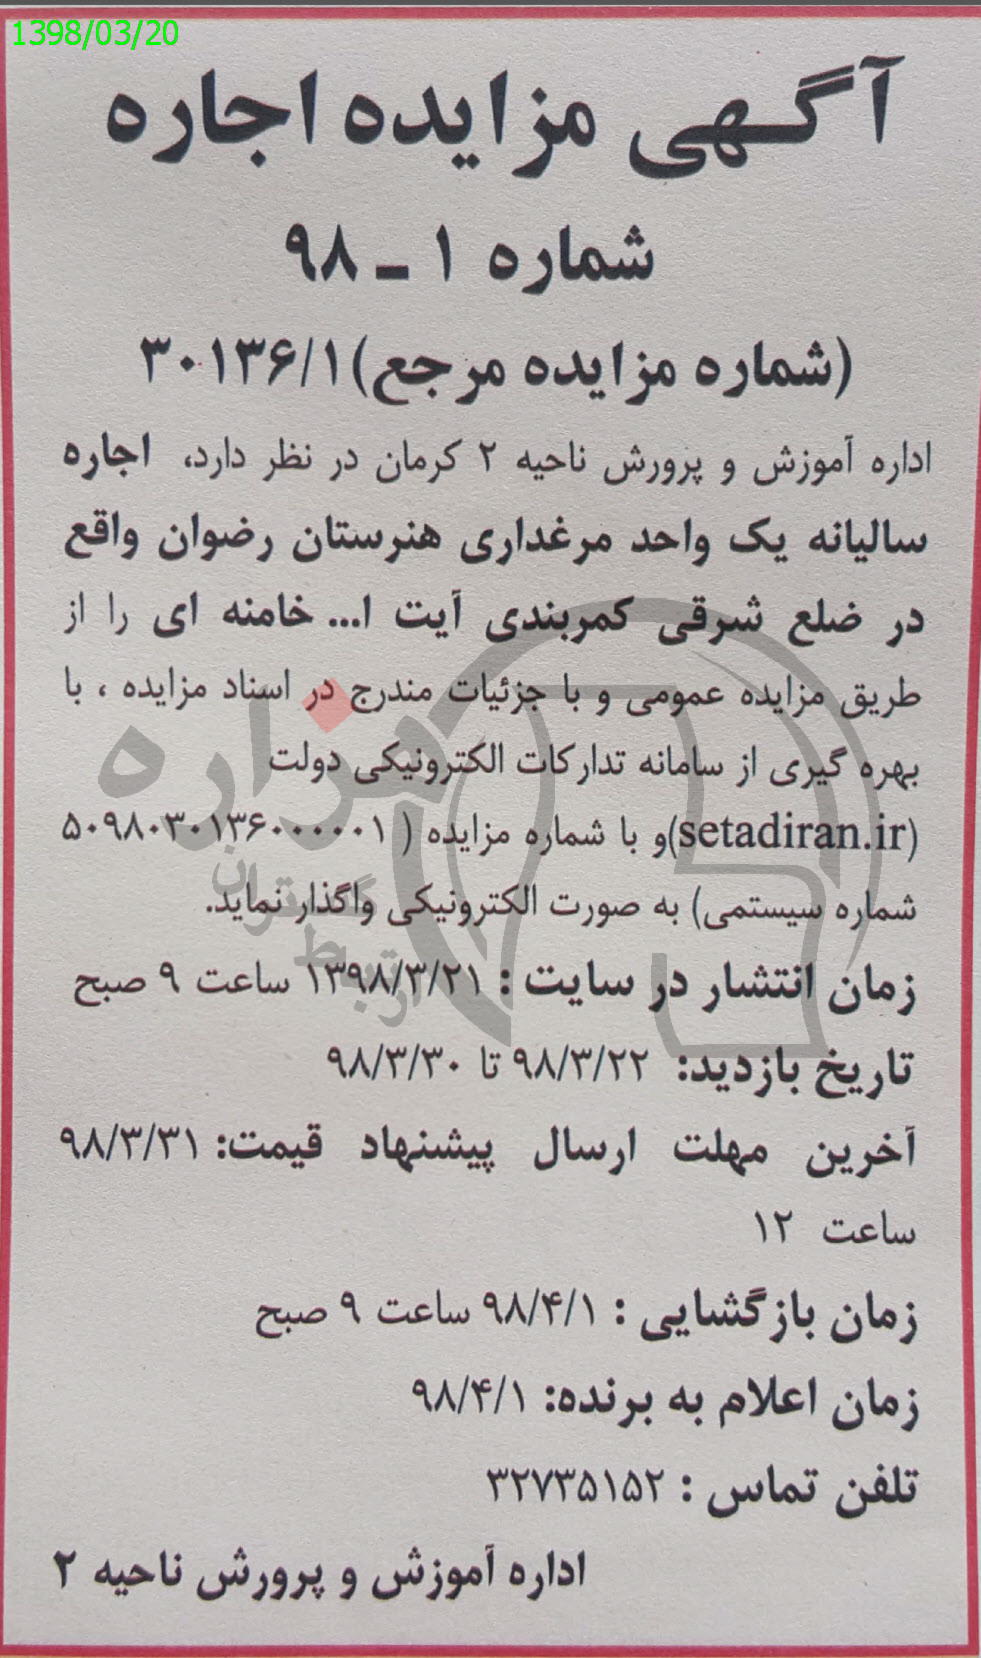 1398/03/20
آگهی مزایده اجاره
شماره ۱ ـ ۹۸
(شماره مزایده مرجع)۳۰۱۳۶/۱
اداره آموزش و پرورش ناحیه ۲ کرمان در نظر دارد، اجاره
سالیانه یک واحد مرغداری هنرستان رضوان واقع
در ضلع شرقی کمربندی آیت ا... خامنه ای را از
طریق مزایده عمومی و با جزئیات مندرج در اسناد مزایده ، با
بهره گیری از سامانه تدارکات الکترونیکی دولت
(setadiran.ir)و با شماره مزایده ( ۵۰۹۸۰۳۰۱۳۶۰۰۰۰۰۱
شماره سیستمی) به صورت الکترونیکی واگذار نماید.
زمان انتشار در سایت : ۱۳۹۸/۳/۲۱ ساعت ۹ صبح
تاریخ بازدید: ۹۸/۳/۲۲ تا ۹۸/۳/۳۰
آخرین مهلت ارسال پیشنهاد قیمت: ۹۸/۳/۳۱
ساعت ۱۲
زمان بازگشایی : ۹۸/۴/۱ ساعت ۹ صبح
زمان اعلام به برنده: ۹۸/۴/۱
تلفن تماس : ۳۲۷۳۵۱۵۲
اداره آموزش و پرورش ناحیه ۲
هزاره